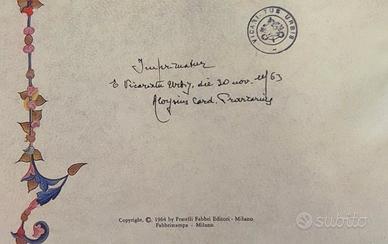 VICARIATUS URBIS
Imprimatur
E Vicariatu Urbis, die 30 nov. 1963
Aloysius Card. Provicarius
Copyright, ©, 1964 by Fratelli Fabbri Editori - Milano
Fabbristampa - Milano.
subito